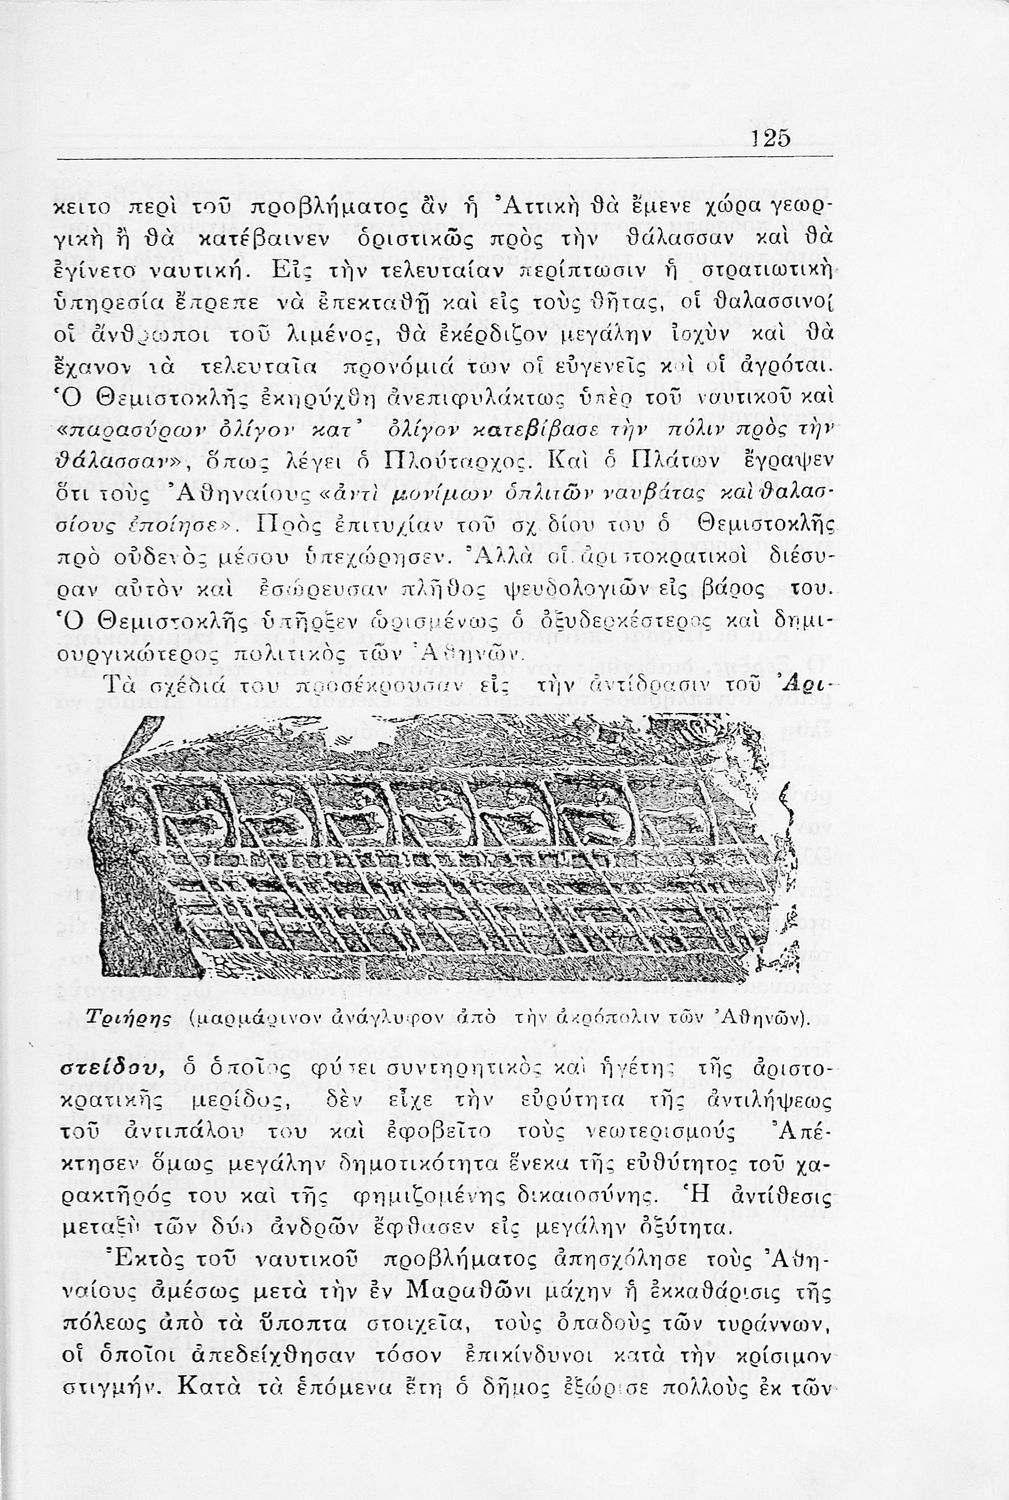 125
κειτο περὶ τοῦ προβλήματος ἂν ἡ Ἀττικὴ θὰ ἔμενε χώρα γεωρ-
γικὴ ἢ θὰ κατέβαινεν ὁριστικῶς πρὸς τὴν θάλασσαν καὶ θὰ
ἐγίνετο ναυτική. Εἰς τὴν τελευταίαν περίπτωσιν ἡ στρατιωτικὴ
ὑπηρεσία ἔπρεπε νὰ ἐπεκταθῇ καὶ εἰς τοὺς θῆτας, οἱ θαλασσινοί
οἱ ἄνθρωποι τοῦ λιμένος, θὰ ἐκέρδιζον μεγάλην ἰσχὺν καὶ θὰ
ἔχανον τὰ τελευταῖα προνόμιά των οἱ εὐγενεῖς καὶ οἱ ἀγρόται.
Ὁ Θεμιστοκλῆς ἐκηρύχθη ἀνεπιφυλάκτως ὑπὲρ τοῦ ναυτικοῦ καὶ
«παρασύρων ὀλίγον κατ᾽ ὀλίγον κατεβίβασε τὴν πόλιν πρὸς τὴν
θάλασσαν», ὅπως λέγει ὁ Πλούταρχος. Καὶ ὁ Πλάτων ἔγραψεν
ὅτι τοὺς Ἀθηναίους «ἀντὶ μονίμων ὁπλιτῶν ναυβάτας καὶ θαλασ-
σίους ἐποίησε». Πρὸς ἐπιτυχίαν τοῦ σχεδίου του ὁ Θεμιστοκλῆς
πρὸ οὐδενὸς μέσου ὑπεχώρησεν. Ἀλλὰ οἱ ἀριστοκρατικοὶ διέσυ-
ραν αὐτὸν καὶ ἐσώρευσαν πλῆθος ψευδολογιῶν εἰς βάρος του.
Ὁ Θεμιστοκλῆς ὑπῆρξεν ὡρισμένως ὁ ὀξυδερκέστερος καὶ δημι-
ουργικώτερος πολιτικὸς τῶν Ἀθηνῶν.
Τὰ σχέδιά του προσέκρουσαν εἰς τὴν ἀντίδρασιν τοῦ Ἀρι-
Τριήρης (μαρμάρινον ἀνάγλυφον ἀπὸ τὴν ἀκρόπολιν τῶν Ἀθηνῶν).
στείδου, ὁ ὁποῖος φύσει συντηρητικὸς καὶ ἡγέτης τῆς ἀριστο-
κρατικῆς μερίδος, δὲν εἶχε τὴν εὐρύτητα τῆς ἀντιλήψεως
τοῦ ἀντιπάλου του καὶ ἐφοβεῖτο τοὺς νεωτερισμούς Ἀπέ-
κτησεν ὅμως μεγάλην δημοτικότητα ἕνεκα τῆς εὐθύτητος τοῦ χα-
ρακτῆρός του καὶ τῆς φημιζομένης δικαιοσύνης. Ἡ ἀντίθεσις
μεταξὺ τῶν δύο ἀνδρῶν ἔφθασεν εἰς μεγάλην ὀξύτητα.
Ἐκτὸς τοῦ ναυτικοῦ προβλήματος ἀπησχόλησε τοὺς Ἀθη-
ναίους ἀμέσως μετὰ τὴν ἐν Μαραθῶνι μάχην ἡ ἐκκαθάρισις τῆς
πόλεως ἀπὸ τὰ ὕποπτα στοιχεῖα, τοὺς ὀπαδοὺς τῶν τυράννων,
οἱ ὁποῖοι ἀπεδείχθησαν τόσον ἐπικίνδυνοι κατὰ τὴν κρίσιμον
στιγμήν. Κατὰ τὰ ἑπόμενα ἔτη ὁ δῆμος ἐξώρισε πολλοὺς ἐκ τῶν